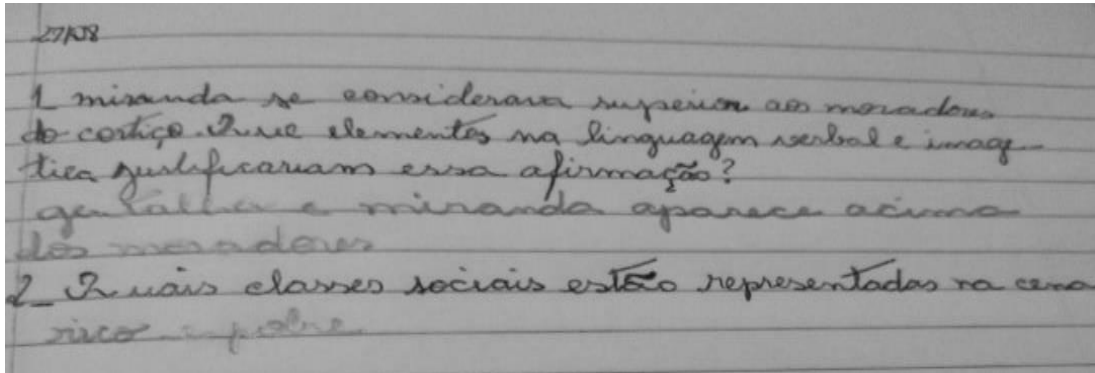 27/08
1 miranda se considerava superior aos moradores
do cortiço. Que elementos na linguagem verbal e imag-
tica justificariam essa afirmação?
gentalha e miranda aparece acima
dos moradores
2_ Quais classes sociais estão representadas na cena
rico e pobre